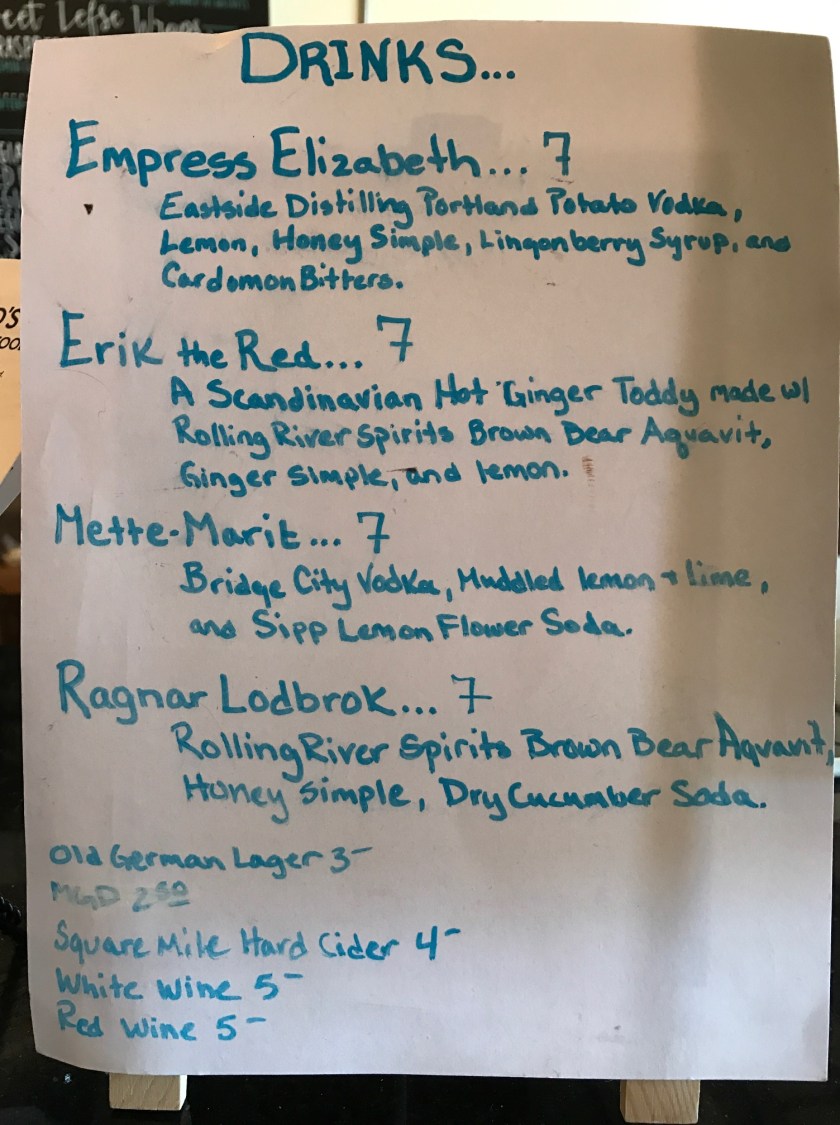 eet Lefse Wraps
DRINKS...
Empress Elizabeth... 7
Eastside Distilling Portland Potato Vodka,
Lemon, Honey Simple, Lingonberry Syrup, and
Cardomon Bitters.
Erik the Red... 7
A Scandinavian Hot Ginger Toddy made w/
Rolling River Spirits Brown Bear Aquavit,
Ginger Simple, and lemon.
Mette-Marit... 7
Bridge City Vodka, Muddled lemon + lime,
and Sipp Lemon Flower Soda.
Ragnar Lodbrok... 7
Rolling River Spirits Brown Bear Aquavit,
Honey Simple, Dry Cucumber Soda.
Old German Lager 3-
MGD 2 50
Square Mile Hard Cider 4-
White Wine 5-
Red Wine 5-